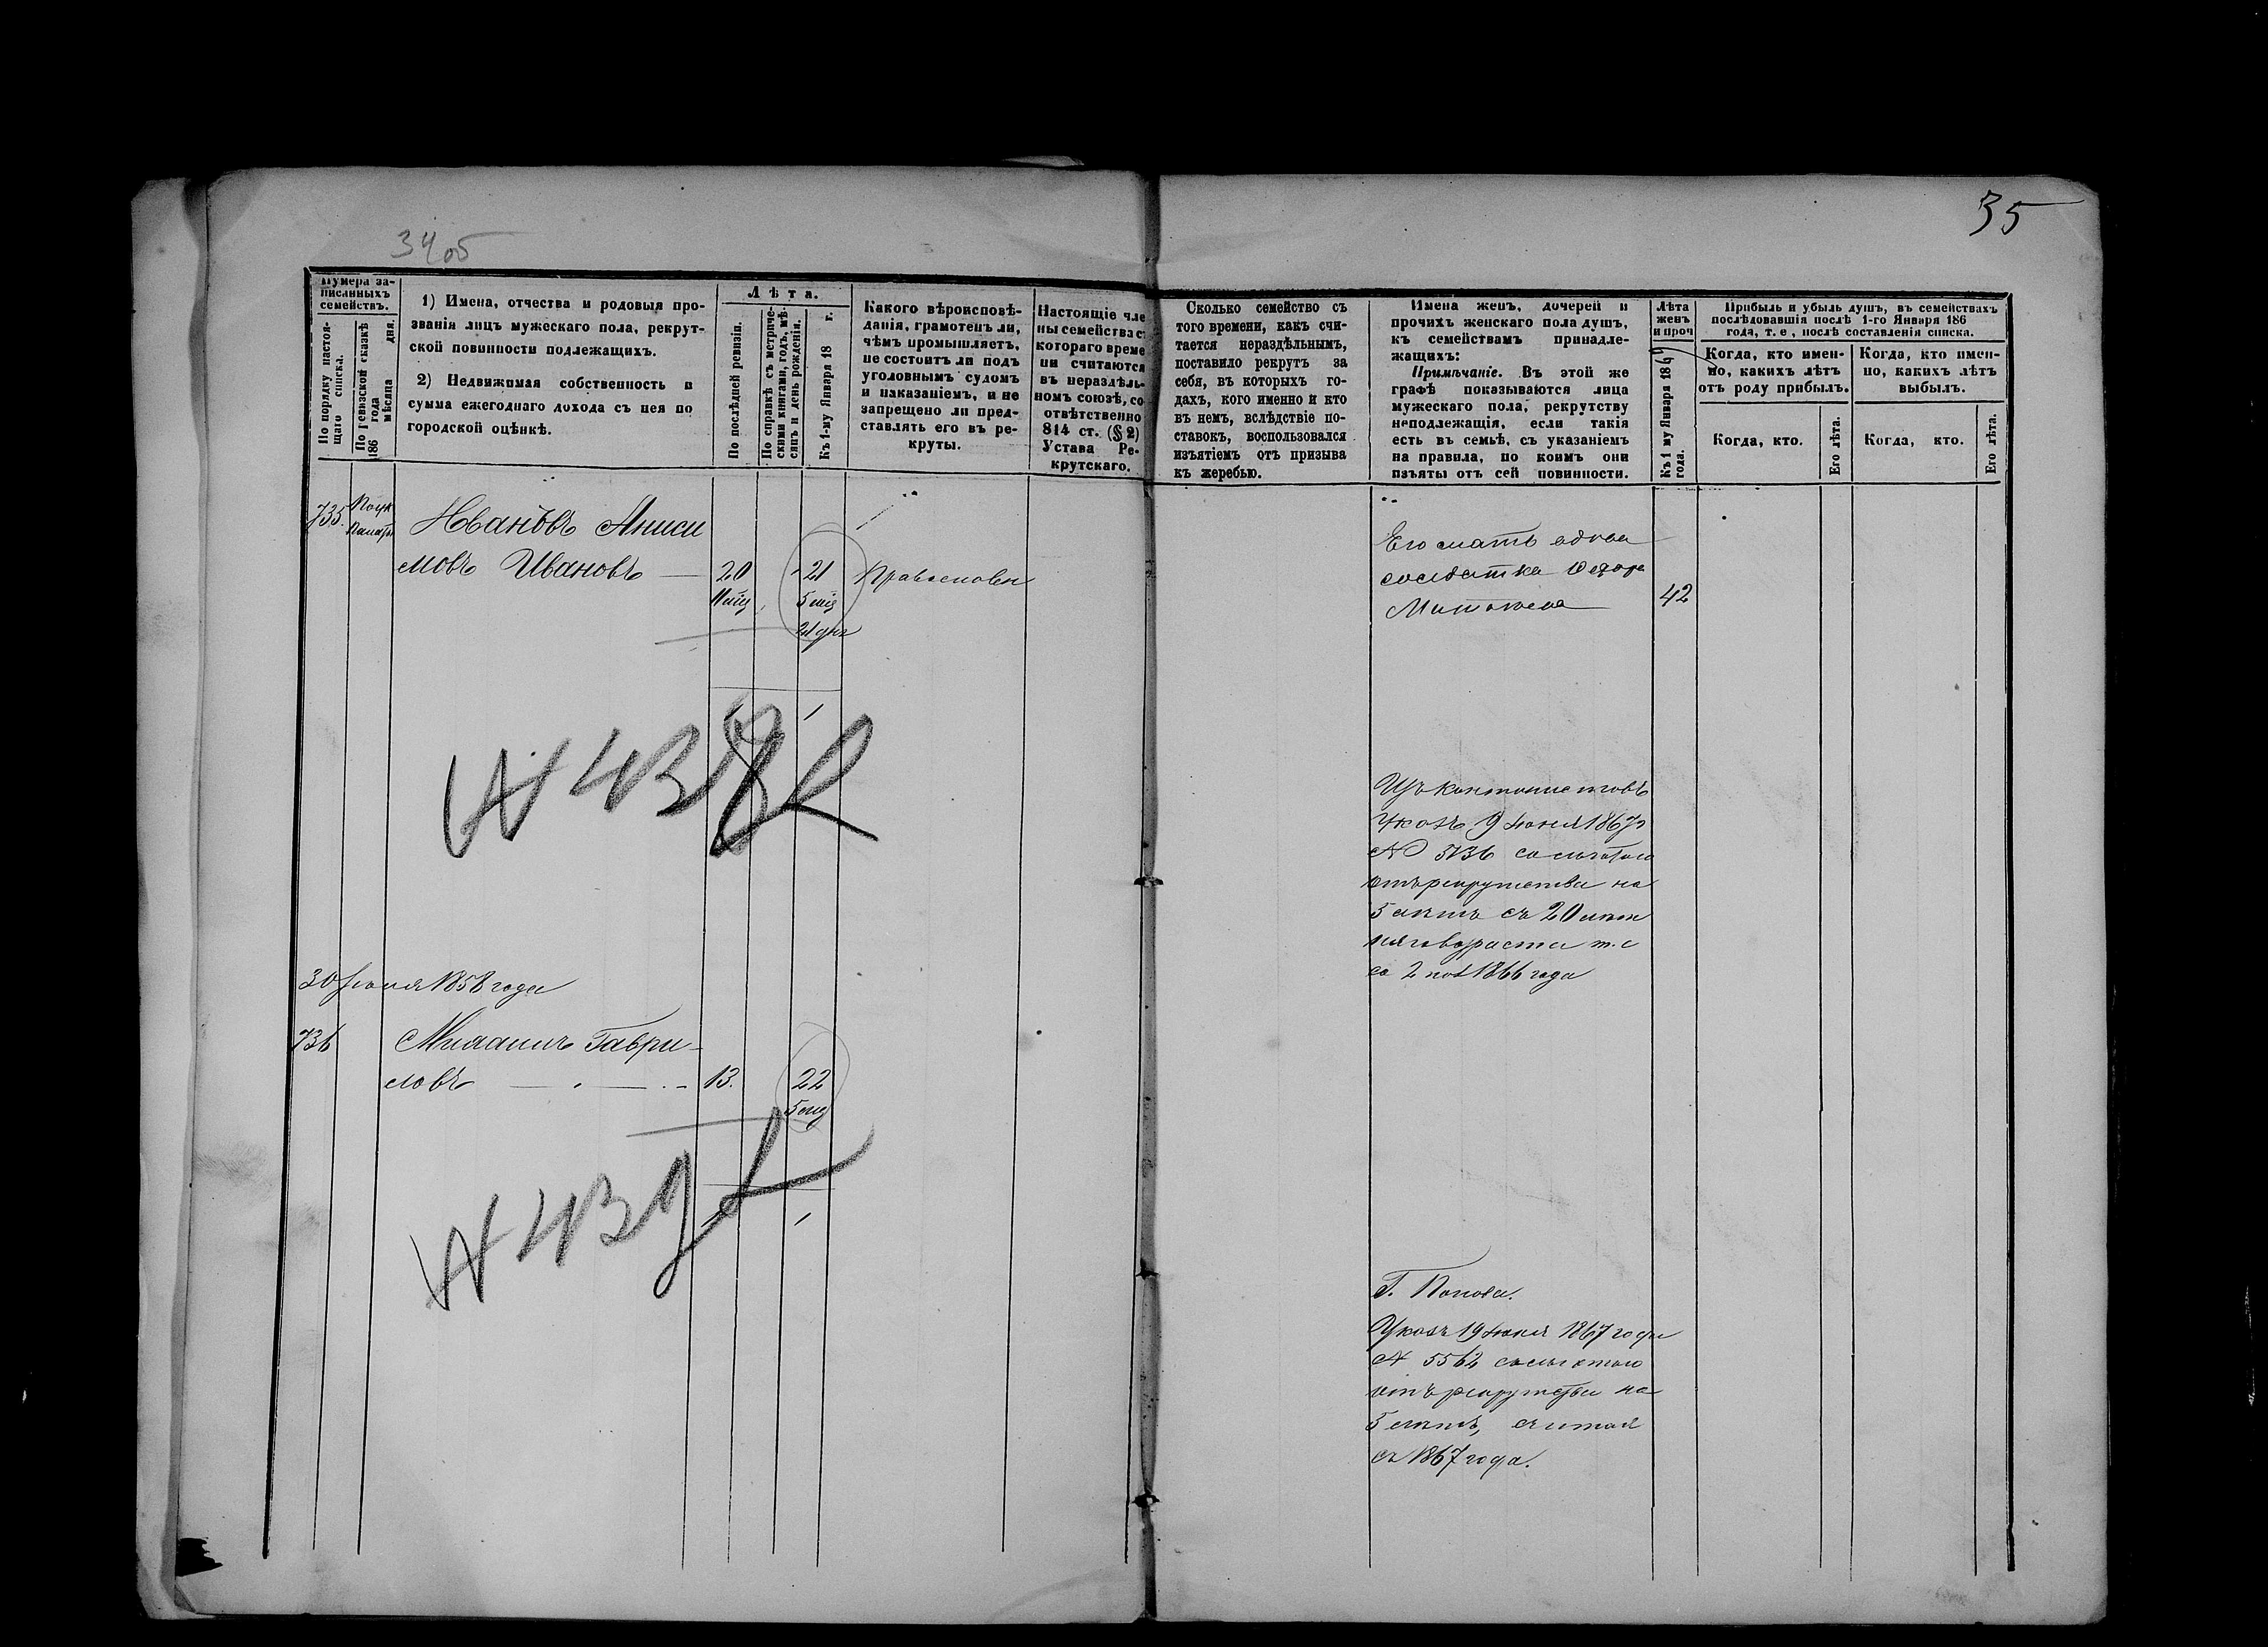 34 об
35
Нумера за-
писанныхъ
семействъ.
По порядку настоя-
щаго списка.
По ревизской сказкѣ
186 года
мѣсяца дня.
1) Имена, отчества и родовыя про-
званія лицъ мужескаго пола, рекрут-
ской повинности подлежащихъ.
2) Недвижимая собственность и
сумма ежегоднаго дохода съ нея по
городской оцѣнкѣ.
Лѣта.
По послѣдней ревизіи.
По справкѣ съ метриче-
скими книгами, годъ, мѣ-
сяцъ и день рожденія.
Къ 1-му Января 18 г.
Какого вѣроисповѣ-
данія, грамотенъ ли,
чѣмъ промышляетъ,
не состоитъ ли подъ
уголовнымъ судомъ
и наказаніемъ, и не
запрещено ли пред-
ставлять его въ ре-
круты.
Настоящіе чле
ны семейства с
котораго време
ни считаются
въ нераздѣль-
номъ союзѣ, со
отвѣтственно
814 ст. (§ 2)
Устава Ре-
крутскаго.
Сколько семейство съ
того времени, какъ счи-
тается нераздѣльнымъ,
поставило рекрутъ за
себя, въ которыхъ го-
дахъ, кого именно и кто
въ немъ, вслѣдствіе по-
ставокъ, воспользовался
изъятіемъ отъ призыва
къ жеребью.
Имена женъ, дочерей и
прочихъ женскаго пола душъ,
къ семействамъ принадле-
жащихъ:
Примѣчаніе. Въ этой же
графѣ показываются лица
мужескаго пола, рекрутству
неподлежащія, если такія
есть въ семьѣ, съ указаніемъ
на правила, по коимъ они
изъяты отъ сей повинности.
Лѣта
женъ
и проч
Къ 1 му Января 1867
года.
Прибыль и убыль душъ, въ семействахъ
послѣдовавшія послѣ 1-го Января 186
года, т. е., послѣ составленія списка.
Когда, кто имен-
но, какихъ лѣтъ
отъ роду прибылъ.
Когда, кто имен-
но, какихъ лѣтъ
выбылъ.
Когда, кто.
Его лѣта.
Когда, кто.
Его лѣта.
735.
Ивановъ Аниси
мовъ Ивановъ — 20 21 Православн
5 мѣ
21 дн
1
№ 438
Его мать вдова
солдатка Федора
42
Изъ кантонистовъ
Указъ 9 Іюня 1867
№ 5136 со льготою
отъ рекрутства на
5 лѣтъ съ 20 лѣт
няго возраста т. е
со 2 ноя 1866 года
30 Іюня 1858 года
736
Гаври-
ловъ — 13. 22
5 мѣ
1
№ 439
Г. Попова.
Указъ 19 Іюня 1867 года
№ 5562 со льготою
отъ рекрутства на
5 лѣтъ, считая
съ 1867 года.